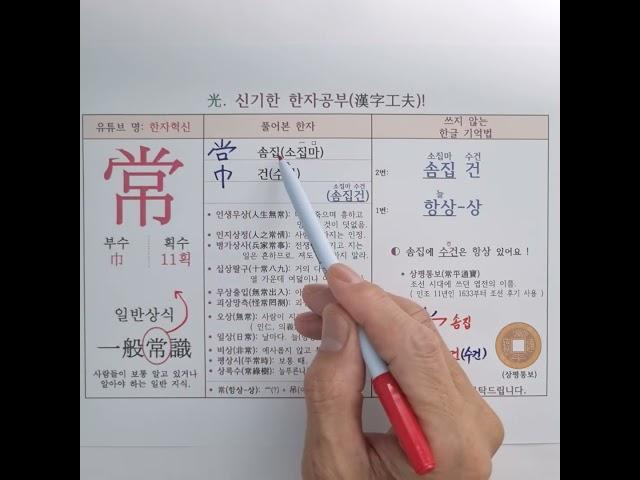 光. 신기한 한자공부(漢字工夫)!
유튜브 명: 한자혁신
常
부수 획수
巾 11획
일반상식
一般常識
사람들이 보통 알고 있거나
알아야 하는 일반 지식.
풀어본 한자
솜집(소집마)
巾 건(수건)
소집마 수건
(솜집건)
• 인생무상(人生無常):
것이 덧없음.
• 인지상정(人之常情): 인정.
• 병가상사(兵家常事): 지는
일은 흔하므로, 져도 말라.
• 십상팔구(十常八九): 거의
열 가운데 여덟이나
• 무상출입(無常出入):
• 괴상망측(怪常罔測):
• 오상(無常): 사람이
( 인仁, 의義
• 일상(日常): 날마다.
• 비상(非常): 예사롭지 않고
• 평상시(平常時): 보통 때.
• 상록수(常綠樹): 늘푸른나
• 常(항상-상):
쓰지 않는
한글 기억법
소집마 수건
2번: 솜집 건
늘
1번: 항상-상
솜집에 수건은 항상 있어요 !
• 상평통보(常平通寶)
조선 시대에 쓰던 엽전의 이름.
( 인조 11년인 1633부터 조선 후기 사용 )
솜집
건(수건)
(상평통보)
탁드립니다.